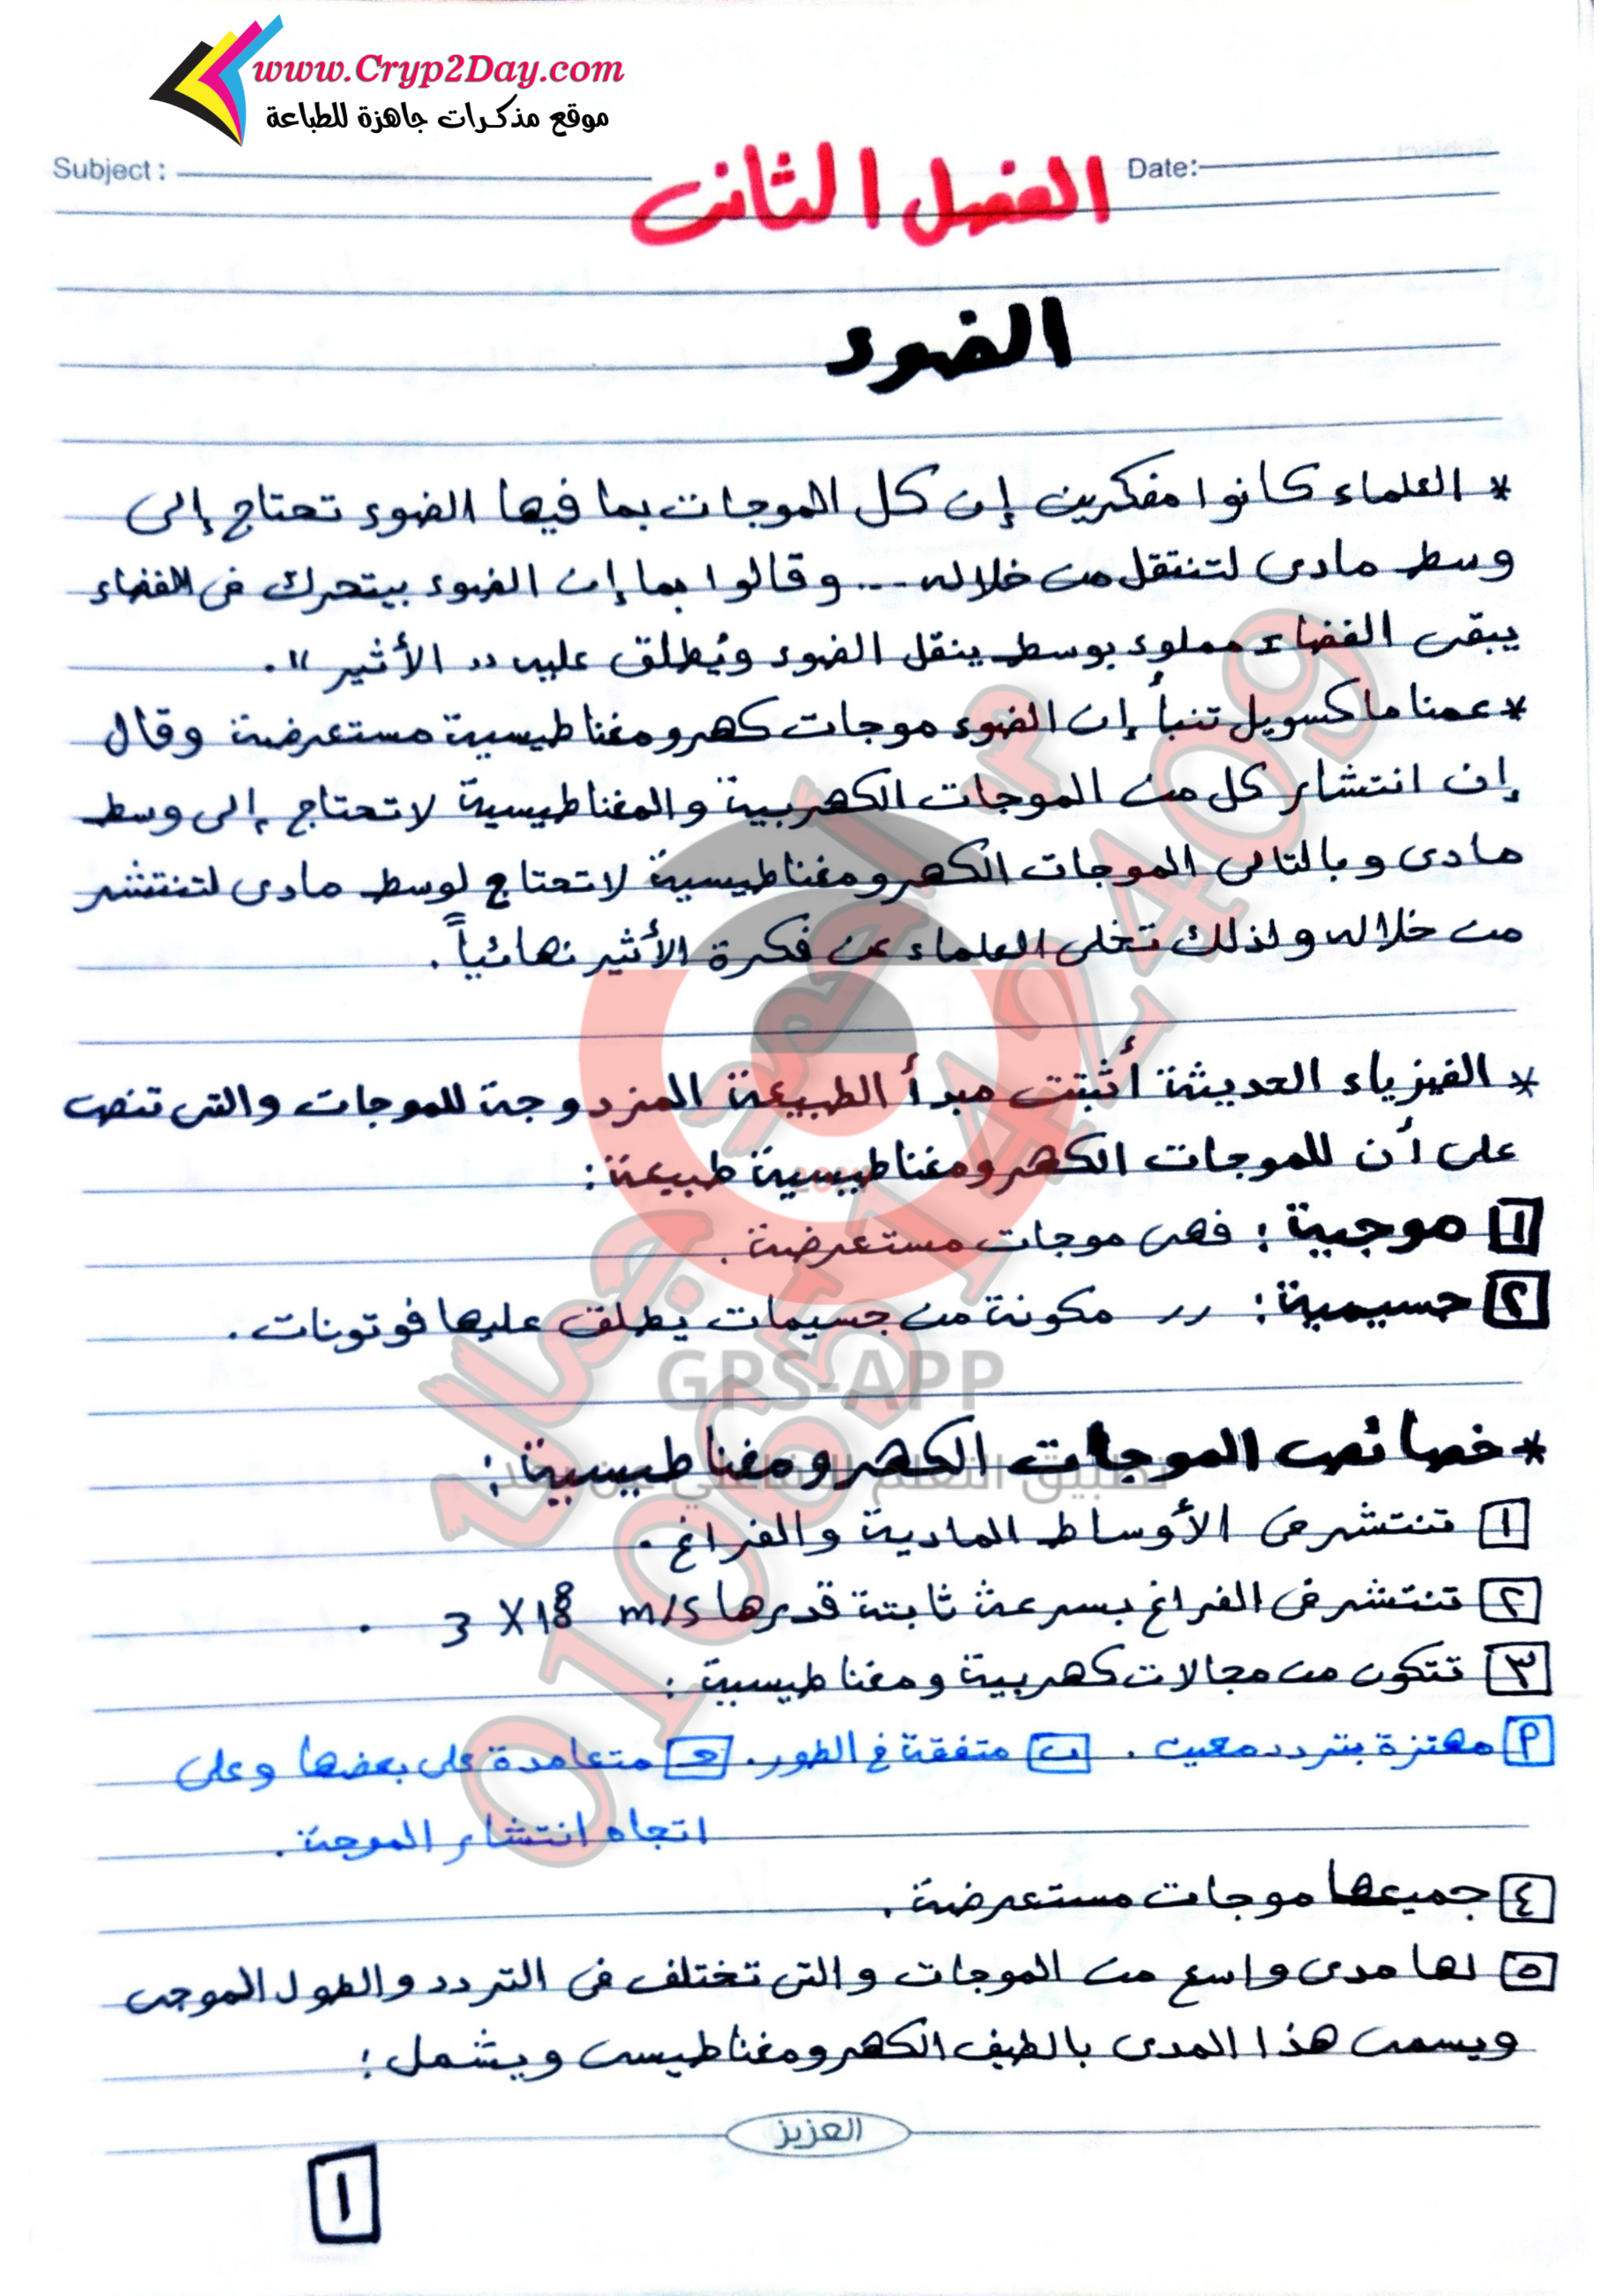 www.Cryp2Day.com
موقع مذكرات جاهزة للطباعة
Subject :
Date:
الفصل الثانى
الضوء
* العلماء كانوا مفكرين إن كل الموجات بما فيها الضوء تحتاج إلى
وسط مادى لتنتقل من خلاله ... وقالوا بما إن الضوء بيتحرك فى الفضاء
يبقى الفضاء مملوء بوسط ينقل الضوء ويُطلق عليه " الأثير ".
* عمنا ماكسويل تنبأ إن الضوء موجات كهرومغناطيسية مستعرضة وقال
إن انتشار كل من الموجات الكهربية والمغناطيسية لا تحتاج إلى وسط
مادى وبالتالى الموجات الكهرومغناطيسية لا تحتاج لوسط مادى لتنتشر
من خلاله ولذلك تخلى العلماء عن فكرة الأثير نهائياً.
* الفيزياء الحديثة أثبتت مبدأ الطبيعة المزدوجة للموجات والتى تنص
على أن للموجات الكهرومغناطيسية طبيعة:
١ موجية: فهى موجات مستعرضة.
٢ جسيمية: 〃 مكونة من جسيمات يطلق عليها فوتونات.
* خصائص الموجات الكهرومغناطيسية:
١ تنتشر فى الأوساط المادية والفراغ.
٢ تنتشر فى الفراغ بسرعة ثابتة قدرها 3 X 10⁸ m/s .
٣ تتكون من مجالات كهربية ومغناطيسية:
أ مهتزة بتردد معين. ب متفقة فى الطور. جـ متعامدة على بعضها وعلى
اتجاه انتشار الموجة.
٤ جميعها موجات مستعرضة.
٥ لها مدى واسع من الموجات والتى تختلف فى التردد والطول الموجى
ويسمى هذا المدى بالطيف الكهرومغناطيسى ويشمل:
العزيز
١
م. أحمد جمال
01065142409
GPS-APP
تطبيق التعلم التفاعلي عن بعد